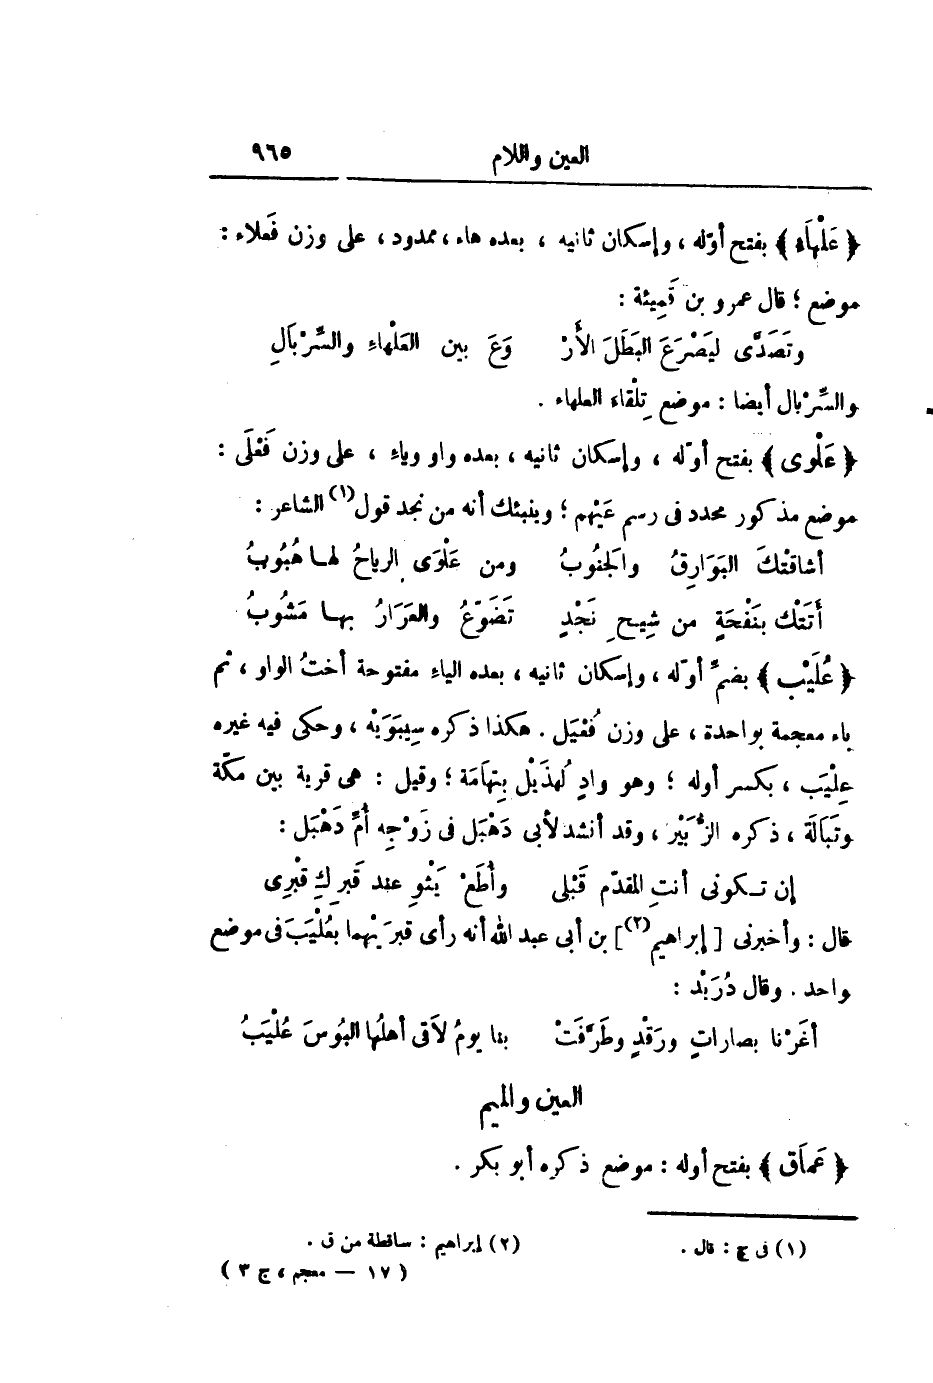 العين واللام ٩٦٥
﴿ عَلْهَاء ﴾ بفتح أوّله ، وإسكان ثانيه ، بعده هاء ، ممدود ، على وزن فَعلاء :
موضع ؛ قال عمرو بن قَمِيئة :
وتَصَدَّى ليَصْرَعَ البَطَلَ الأَرْ وَعَ بين العَلْهاءِ والسِّرْبَالِ
والسِّرْبال أيضا : موضع تِلْقاءَ العلهاء .
﴿ عَلْوى ﴾ بفتح أوّله ، وإسكان ثانيه ، بعده واو وياء ، على وزن فَعْلَى :
موضع مذكور محدد فى رسم عَيْهم ؛ وينبئك أنه من نجد قول(١) الشاعر :
أشاقتْكَ البَوَارِقُ والجَنُوبُ ومن عَلْوَى الرياحُ لها هُبُوبُ
أَتَتْك بنَفْحَةٍ من شِيحِ نَجْدٍ تَضَوّعُ والعَرَارُ بها مَشُوبُ
﴿ عُلَيْب ﴾ بضمّ أوّله ، وإسكان ثانيه ، بعده الياء مفتوحة أختُ الواو ، ثم
باء معجمة بواحدة ، على وزن فُعْيَل . هكذا ذكره سِيبَوَيْه ، وحكى فيه غيره
عِلْيَب ، بكسر أوله ؛ وهو وادٍ لهُذَيْل بتِهَامَة ؛ وقيل : هى قرية بين مكّة
وتَبَالَة ، ذكره الزُّبَيْر ، وقد أنشد لأبى دَهْبَل فى زَوْجِه أُمِّ دَهْبَل :
إن تكونى أنتِ المقدّم قَبْلى وأُطَعْ يَثْوِ عند قَبرِكِ قبْرِى
قال : وأخبرنى [ إبراهيم(٢) ] بن أبى عبد الله أنه رأى قبرَيْهما بعُلْيَبَ فى موضع
واحد . وقال دُرَيْد :
أغَرْنا بصاراتٍ ورَقْدٍ وطَرَّفَتْ بنا يومُ لاَقى أهلُها البُوسَ عُلْيَبُ
العين والميم
﴿ عَمَاق ﴾ بفتح أوله : موضع ذكره أبو بكر .
(١) فى ج : قال . (٢) إبراهيم : ساقطة من ق .
( ١٧ — معجم ، ج ٣ )